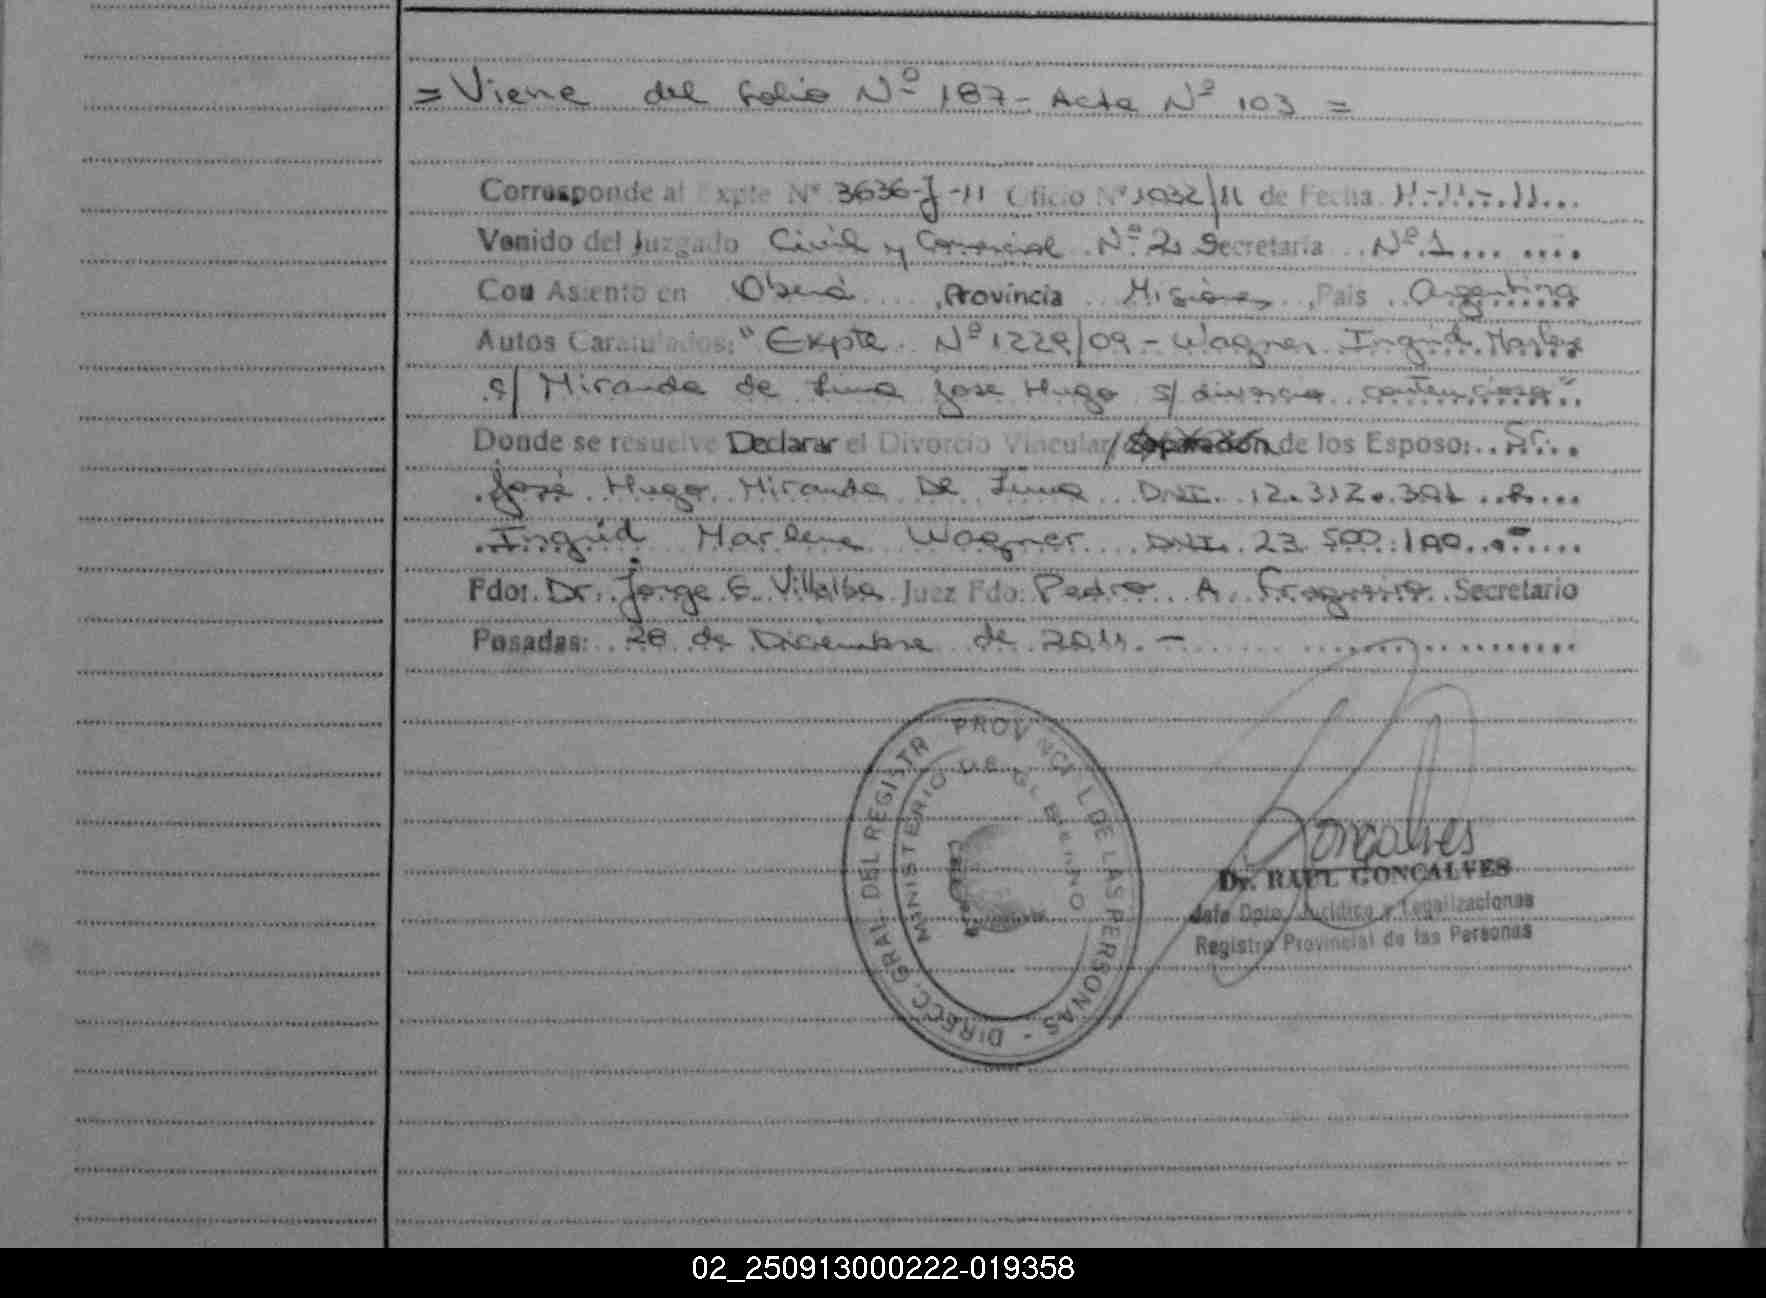 = Viene del folio Nº 187 - Acta Nº 103 =
Corresponde al Expte Nº 3636-J-11 Oficio Nº 1032/11 de Fecha 11-11-11
Venido del Juzgado Civil y Comercial Nº 2 Secretaría Nº 1
Con Asiento en Oberá, Provincia Misiones, País Argentina
Autos Caratulados: "Expte Nº 1229/09 - Wagner Ingrid Marlene
c/ Miranda de Lima Jose Hugo s/ divorcio contencioso"
Donde se resuelve Declarar el Divorcio Vincular/Separación de los Esposo: Sr.
José Hugo Miranda De Lima DNI. 12.312.391
Ingrid Marlene Wagner DNI. 23.500.190.-
Fdo: Dr. Jorge E. Villalba Juez Fdo: Pedro A. Fragueiro Secretario
Posadas: 28 de Diciembre de 2011.-
DIREC. GRAL. DEL REGISTR PROVINCIAL DE LAS PERSONAS -
MINISTERIO DE GOBIERNO
Goncalves
Dr. RAUL GONCALVES
Jefe Dpto. Jurídico y Legalizaciones
Registro Provincial de las Personas
02_250913000222-019358